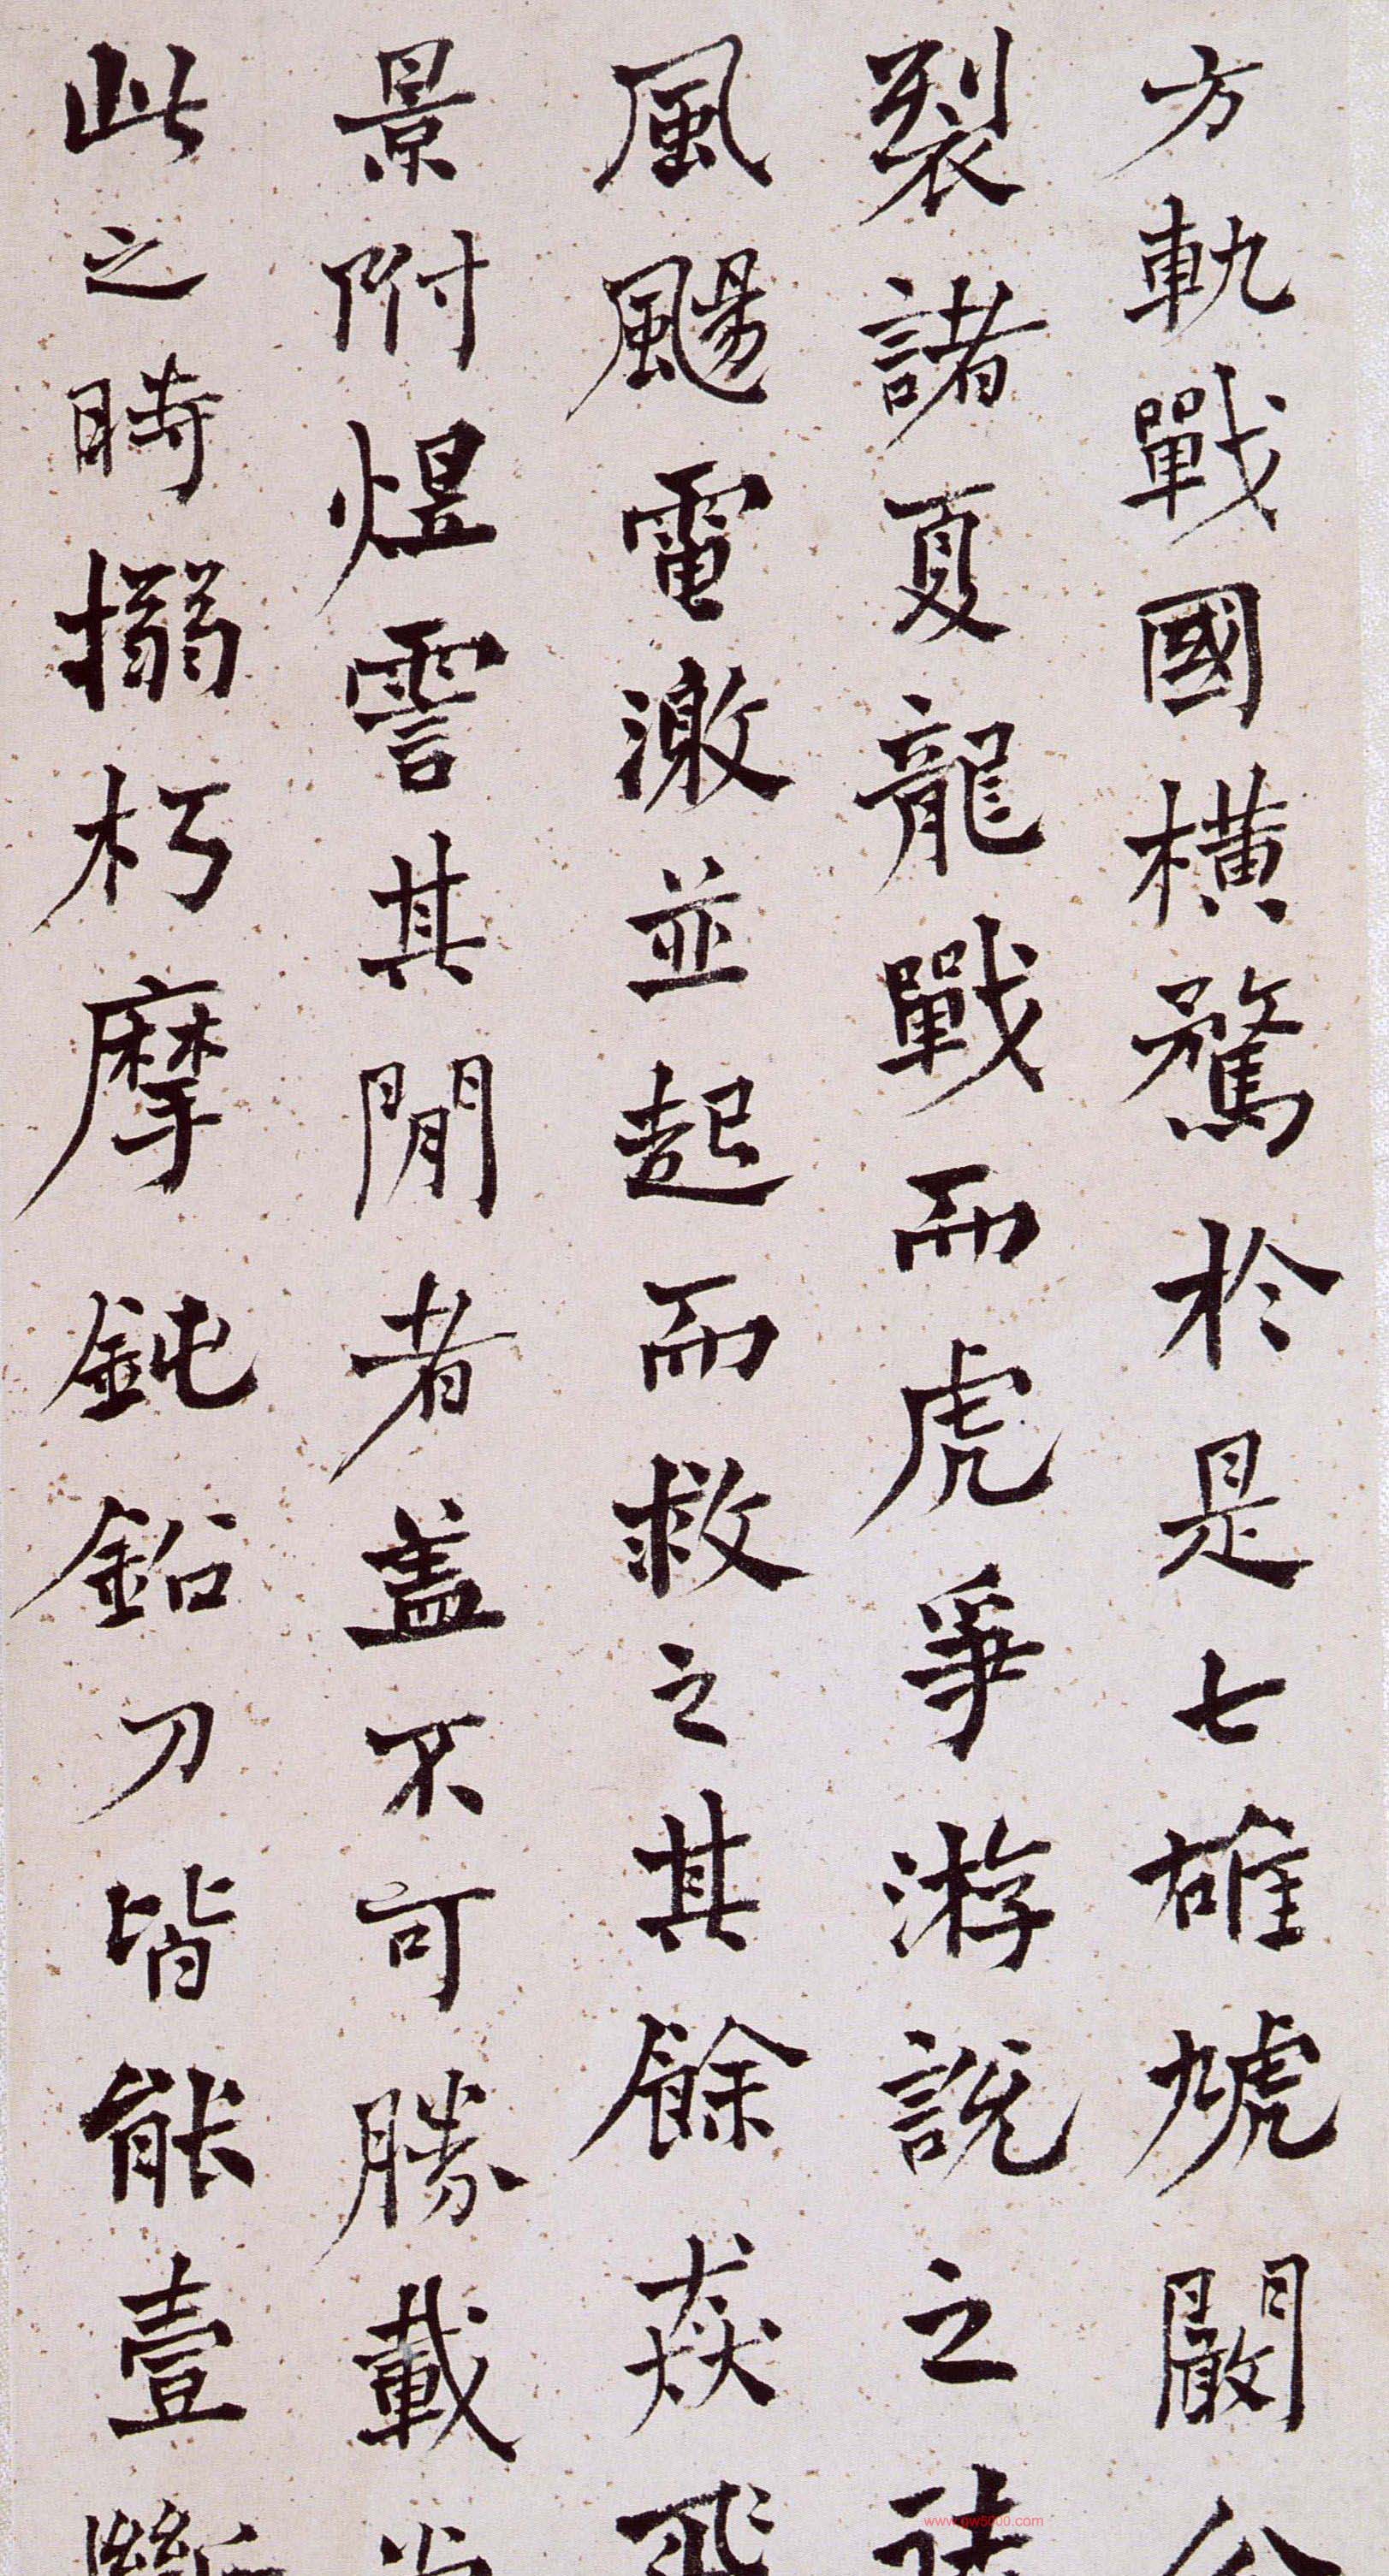 方軌戰國橫騖於是七雄虓闞分
裂諸夏龍戰而虎爭游說之徒
風颺電激並起而救之其餘猋飛
景附煜霅其閒者蓋不可勝載當
此之時搦朽摩鈍鉛刀皆能壹斷
www.gw5000.com